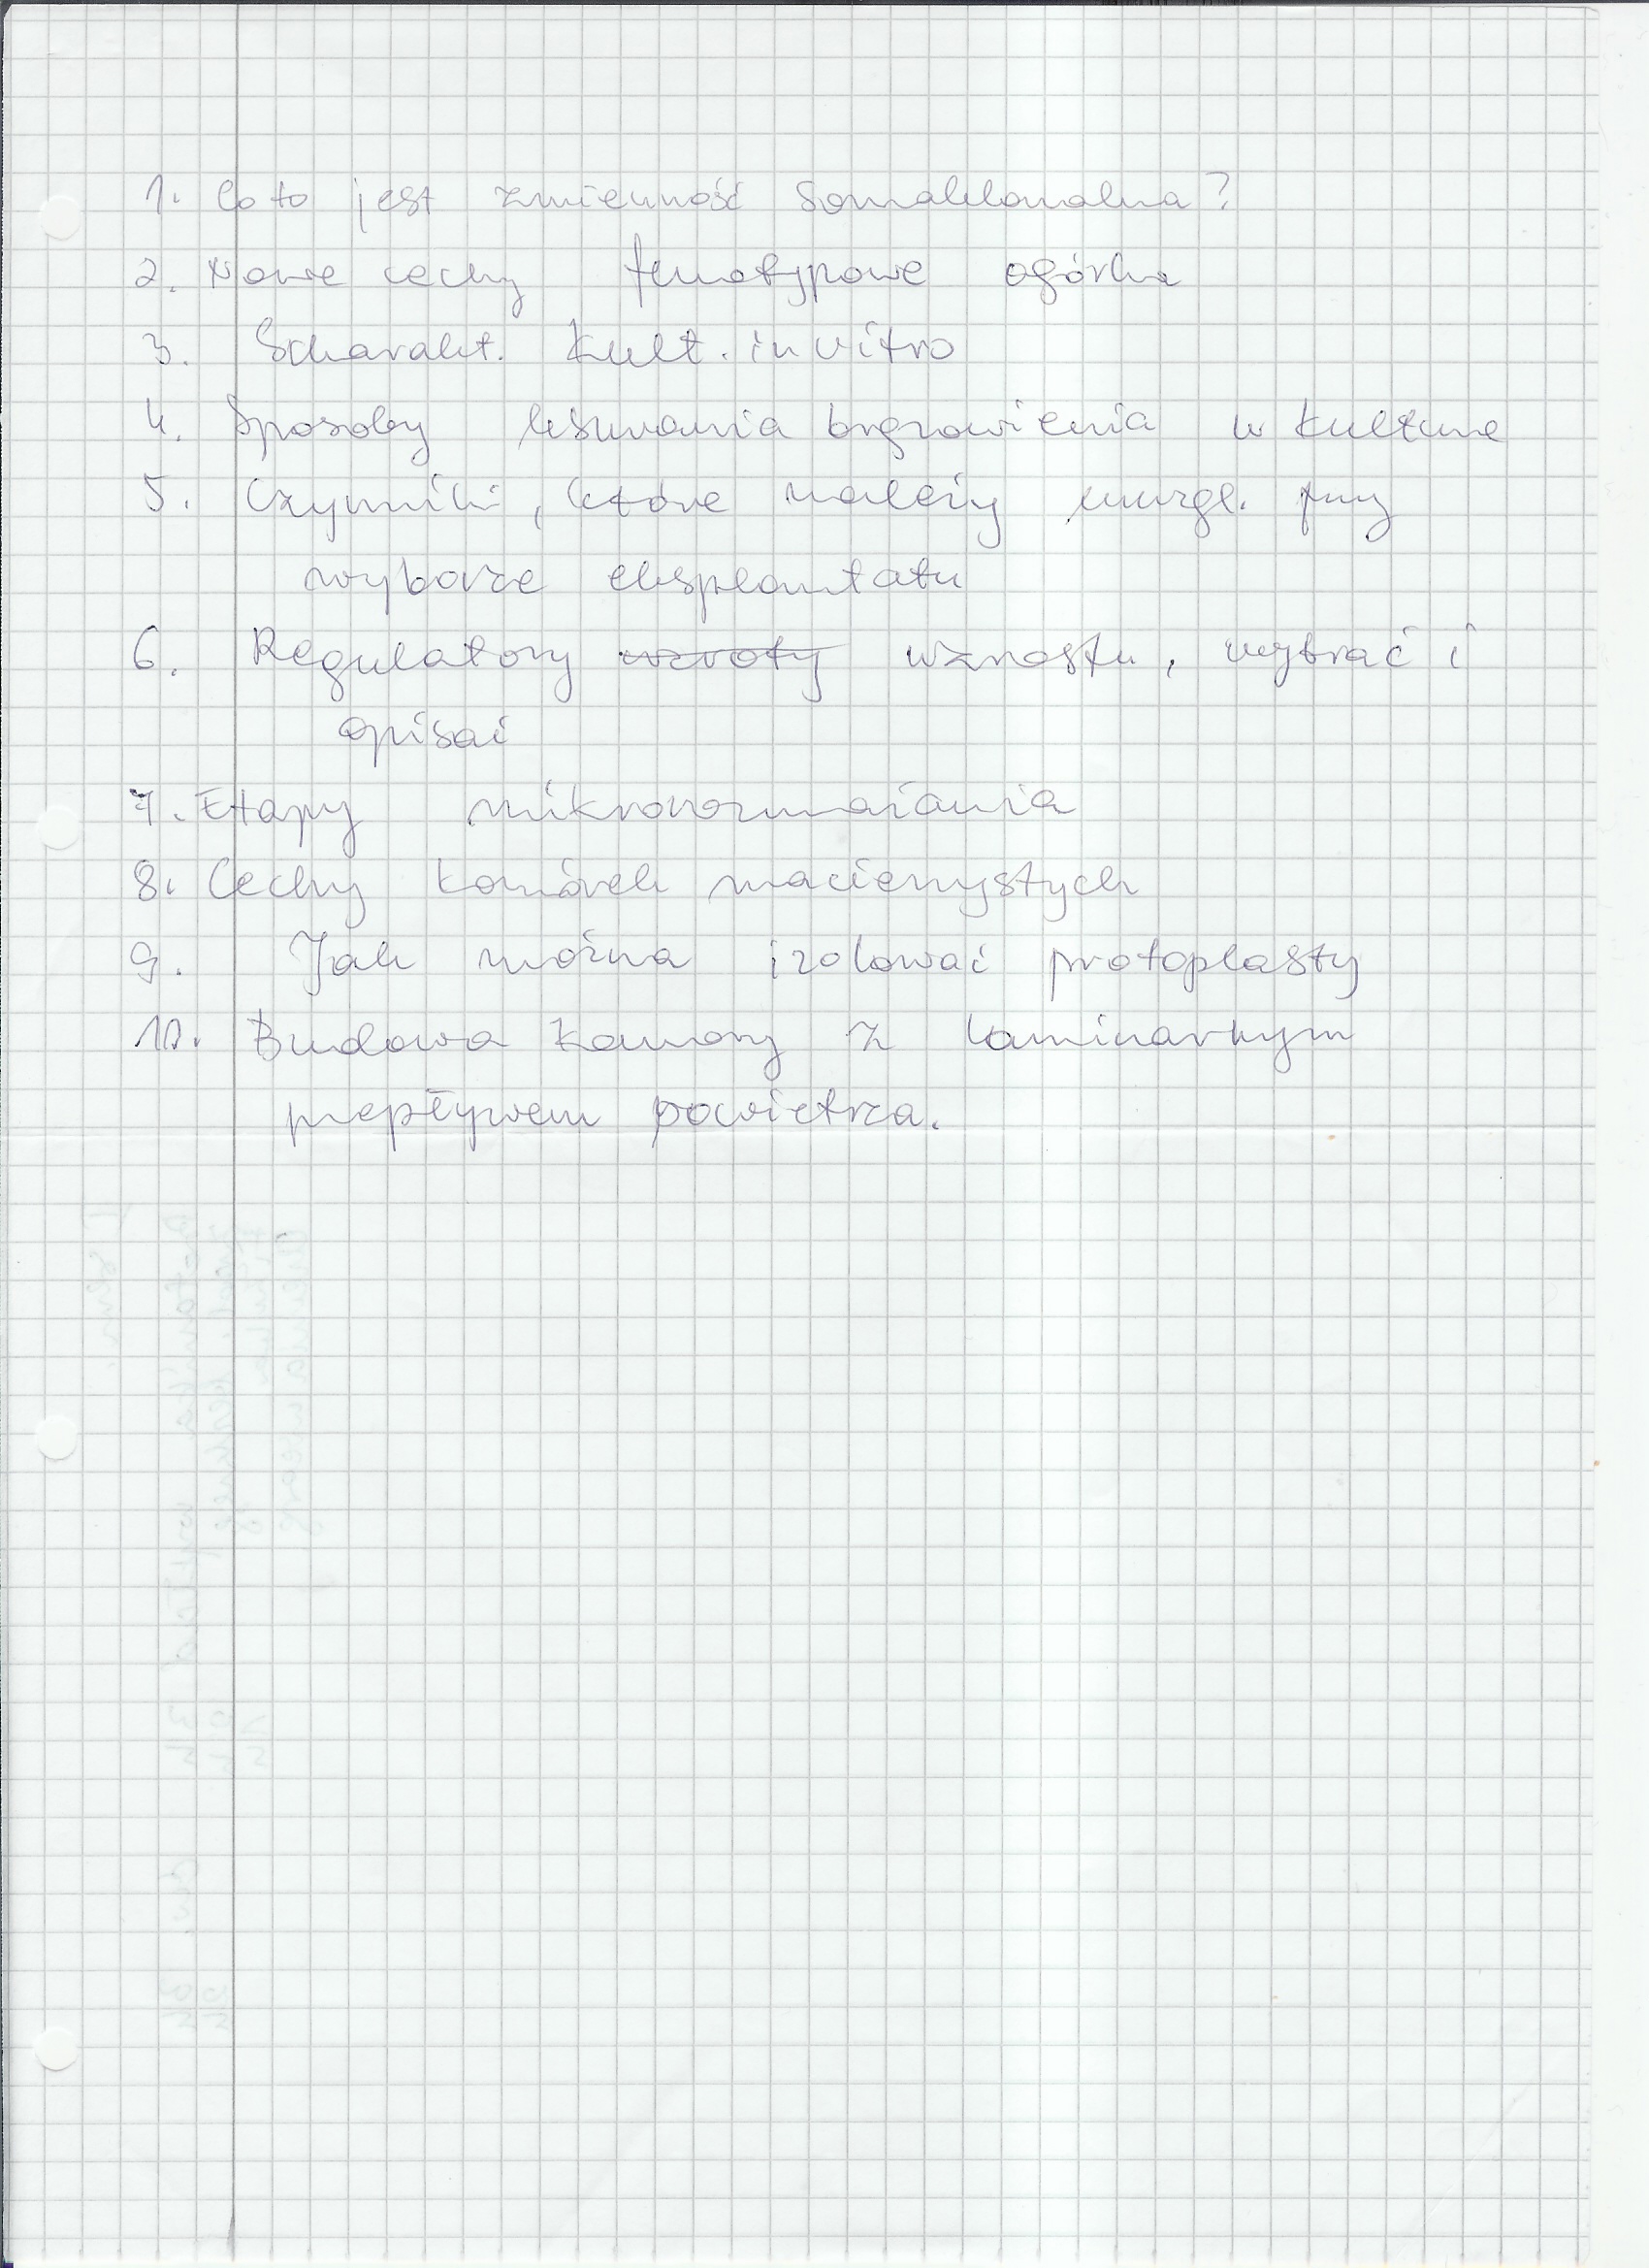 1. Co to jest zmienność somaklonalna?
2. Nowe cechy fenotypowe ogórka
3. Scharakt. kult. in vitro
4. Sposoby usuwania brązowienia w kulturze
5. Czynniki, które należy uwzgl. przy
wyborze eksplantatu
6. Regulatory wzrostu, wybrać i
opisać
7. Etapy mikrorozmnażania
8. Cechy komórek macierzystych
9. Jak można izolować protoplasty
10. Budowa komory z laminarnym
przepływem powietrza.